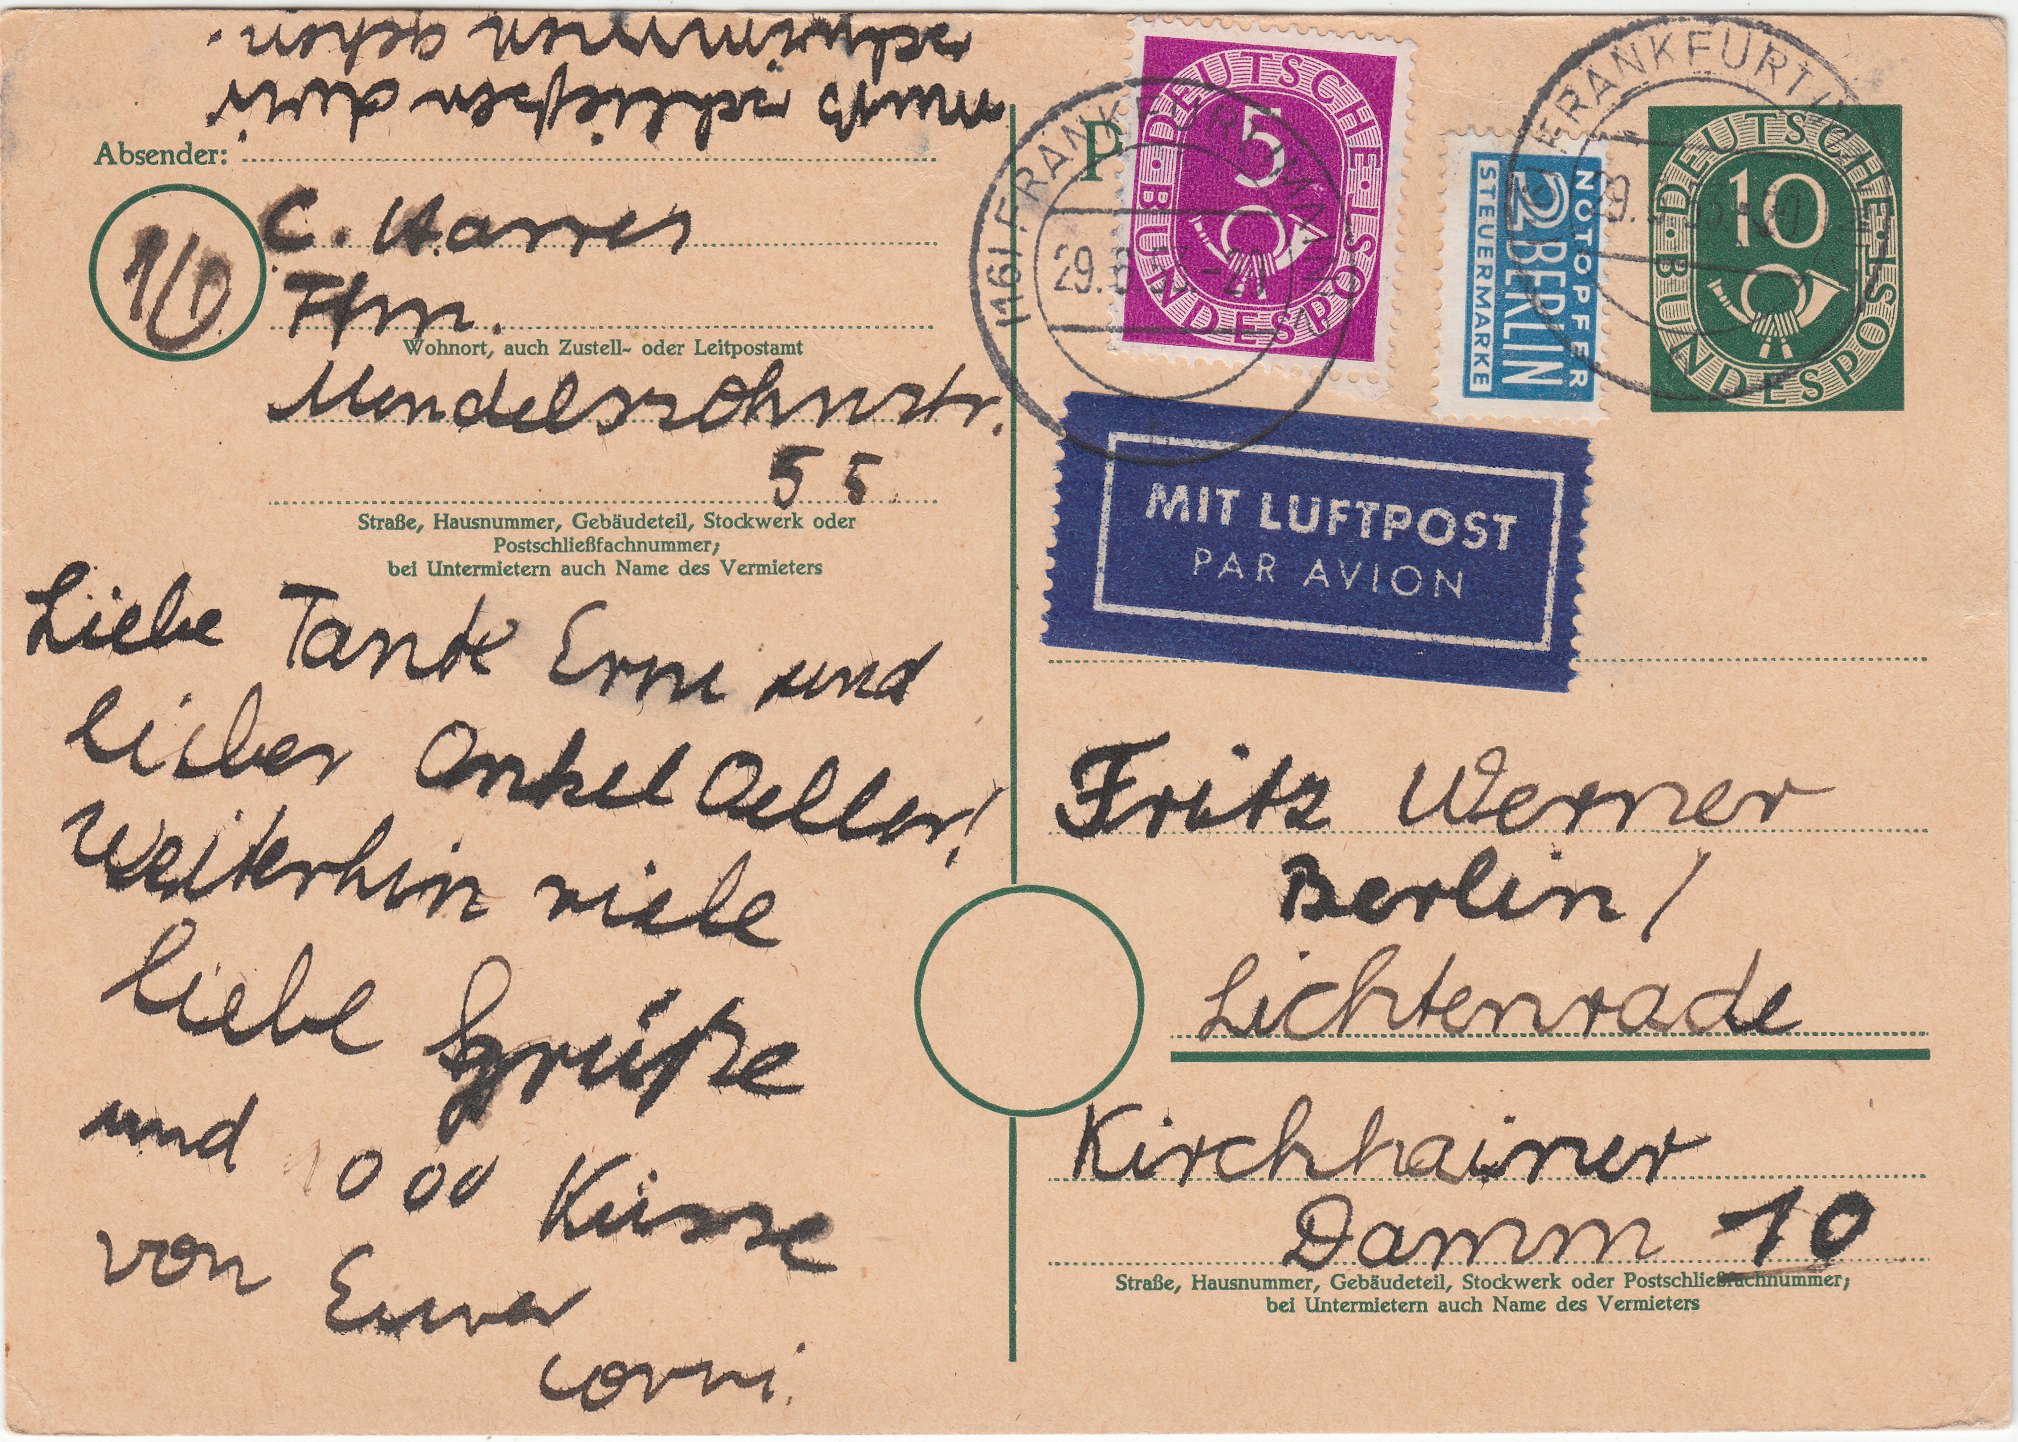 muß schließen da wir
schwimmen gehen.
Absender:
C. Harres
Ffm.
Wohnort, auch Zustell- oder Leitpostamt
Mendelssohnstr.
55
Straße, Hausnummer, Gebäudeteil, Stockwerk oder
Postschließfachnummer;
bei Untermietern auch Name des Vermieters
Liebe Tante Erni und
lieber Onkel Oeller!
Weiterhin viele
liebe Grüße
und 1000 Küsse
von Eurer
Corni.
P
DEUTSCHE BUNDESPOST
5
(16) FRANKFURT (MAIN)
29. 53.-21
NOTOPFER
2 BERLIN
STEUERMARKE
FRANKFURT (MAIN)
DEUTSCHE BUNDESPOST
10
MIT LUFTPOST
PAR AVION
Fritz Werner
Berlin/
Lichtenrade
Kirchhainer
Damm 10
Straße, Hausnummer, Gebäudeteil, Stockwerk oder Postschließfachnummer;
bei Untermietern auch Name des Vermieters